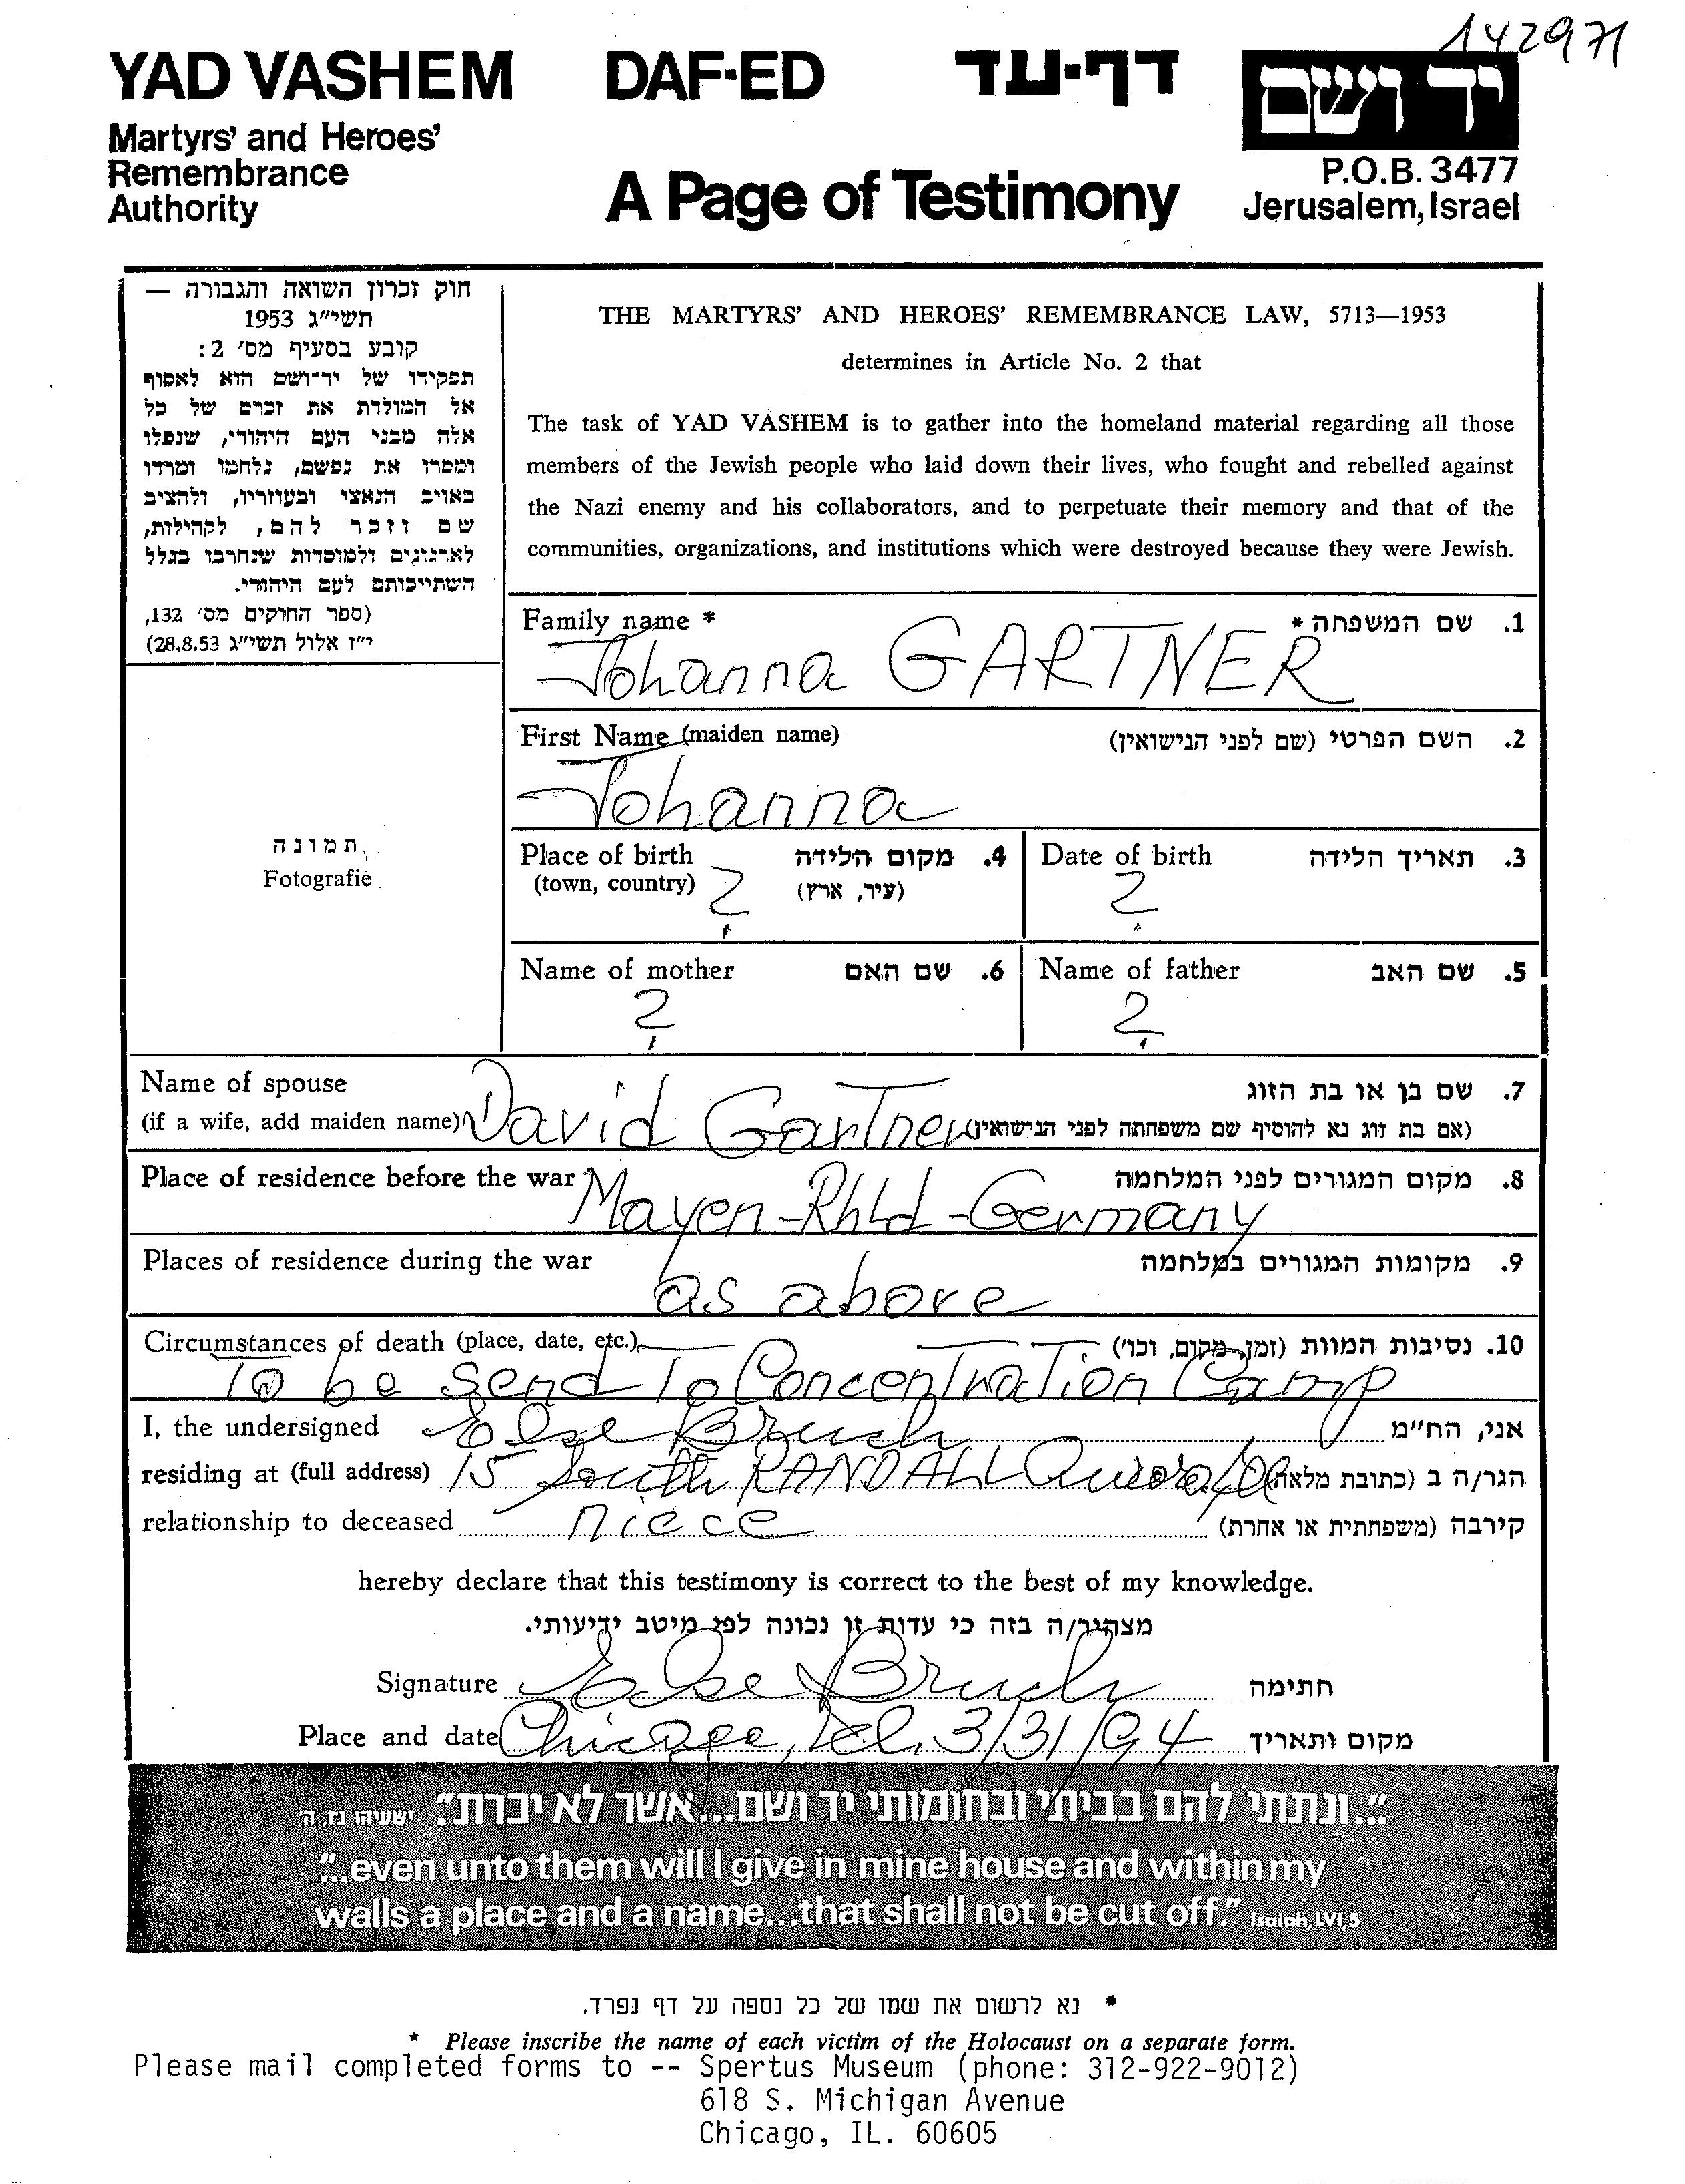 142971
YAD VASHEM DAF-ED דף-עד יד ושם
Martyrs' and Heroes'
Remembrance
Authority
A Page of Testimony
P.O.B. 3477
Jerusalem, Israel
חוק זכרון השואה והגבורה —
תשי״ג 1953
קובע בסעיף מס׳ 2:
תפקידו של יד־ושם הוא לאסוף
אל המולדת את זכרם של כל
אלה מבני העם היהודי, שנפלו
ומסרו את נפשם, נלחמו ומרדו
באויב הנאצי ובעוזריו, ולהציב
שם וזכר להם, לקהילות,
לארגונים ולמוסדות שנחרבו בגלל
השתייכותם לעם היהודי.
(ספר החוקים מס׳ 132,
י״ז אלול תשי״ג 28.8.53)
THE MARTYRS' AND HEROES' REMEMBRANCE LAW, 5713—1953
determines in Article No. 2 that
The task of YAD VASHEM is to gather into the homeland material regarding all those
members of the Jewish people who laid down their lives, who fought and rebelled against
the Nazi enemy and his collaborators, and to perpetuate their memory and that of the
communities, organizations, and institutions which were destroyed because they were Jewish.
Family name * 1. שם המשפחה *
Johanna GARTNER
First Name (maiden name) 2. השם הפרטי (שם לפני הנישואין)
Johanna
תמונה
Fotografie
Place of birth 4. מקום הלידה
(town, country) ? (עיר, ארץ)
Date of birth 3. תאריך הלידה
?
Name of mother 6. שם האם
?
Name of father 5. שם האב
?
Name of spouse 7. שם בן או בת הזוג
(if a wife, add maiden name) David Gartner (אם בת זוג נא להוסיף שם משפחתה לפני הנישואין)
Place of residence before the war 8. מקום המגורים לפני המלחמה
Mayen-Rhld-Germany
Places of residence during the war 9. מקומות המגורים במלחמה
as above
Circumstances of death (place, date, etc.) 10. נסיבות המוות (זמן, מקום, וכו׳)
To be send To Concentration Camp
I, the undersigned Else Bruch אני, הח״מ
residing at (full address) 15 South RANDALL Aurora Ill הגר/ה ב (כתובת מלאה)
relationship to deceased niece קירבה (משפחתית או אחרת)
hereby declare that this testimony is correct to the best of my knowledge.
מצהיר/ה בזה כי עדות זו נכונה לפי מיטב ידיעותי.
Signature Else Bruch חתימה
Place and date Chicago, Ill. 3/31/94 מקום ותאריך
״...ונתתי להם בביתי ובחומותי יד ושם...אשר לא יכרת״. ישעיהו נו, ה׳
"...even unto them will I give in mine house and within my
walls a place and a name...that shall not be cut off." Isaiah, LVI,5
* נא לרשום את שמו של כל נספה על דף נפרד.
* Please inscribe the name of each victim of the Holocaust on a separate form.
Please mail completed forms to -- Spertus Museum (phone: 312-922-9012)
618 S. Michigan Avenue
Chicago, IL. 60605